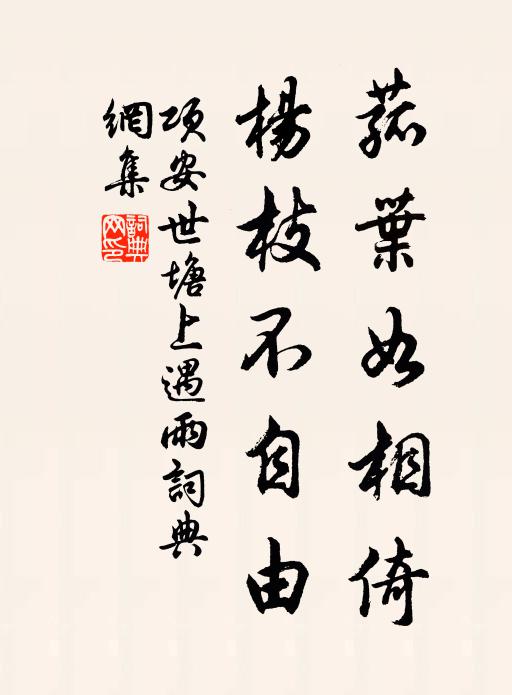 菰葉如相倚
楊枝不自由
項安世塘上遇雨詞典
網集
詞典網印